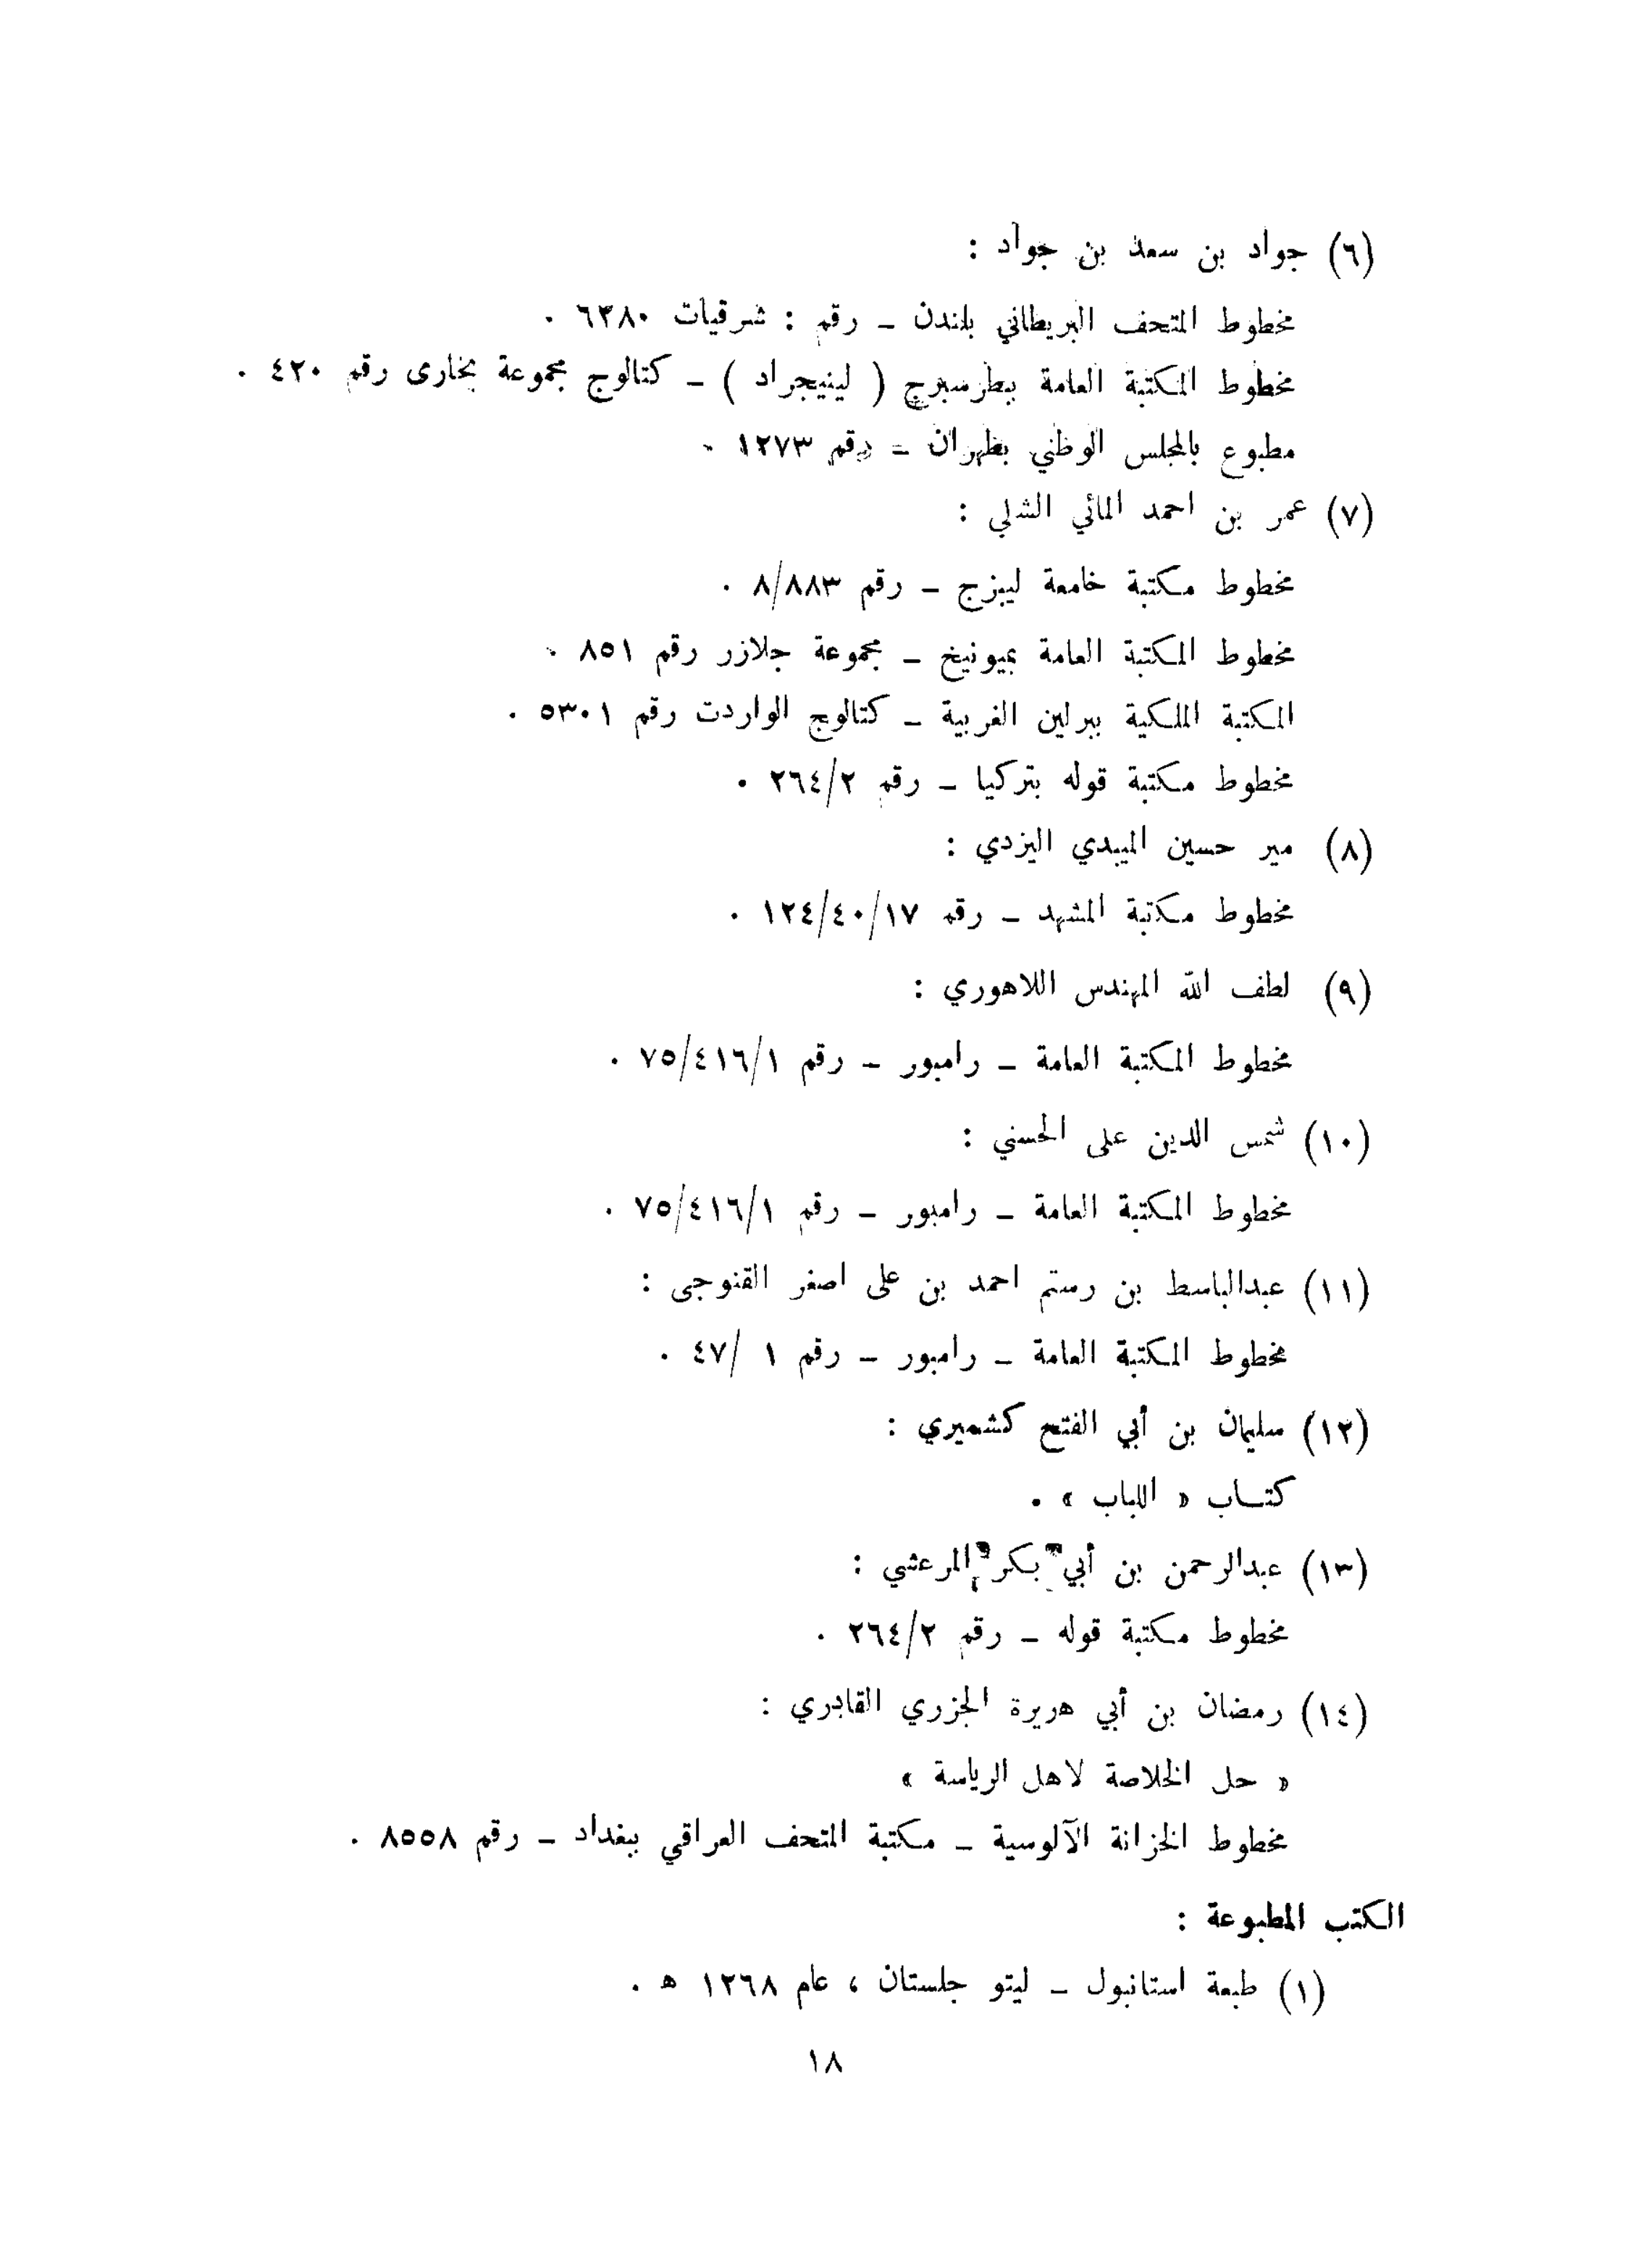 (٦) جواد بن سعد بن جواد :
مخطوط المتحف البريطاني بلندن – رقم : شرقيات ٦٢٨٠ .
مخطوط المكتبة العامة ببطرسبرج ( لينيجراد ) – كتالوج مجموعة بخارى رقم ٤٢٠ .
مطبوع بالمجلس الوطني بطهران – رقم ١٢٧٣ .
(٧) عمر بن احمد المائي الشلي :
مخطوط مكتبة خامعة ليبزج – رقم ٨/٨٨٣ .
مخطوط المكتبة العامة بميونيخ – مجموعة جلازر رقم ٨٥١ .
المكتبة الملكية ببرلين الغربية – كتالوج الواردت رقم ٥٣٠١ .
مخطوط مكتبة قوله بتركيا – رقم ٢٦٤/٢ .
(٨) مير حسين الميبدي اليزدي :
مخطوط مكتبة المشهد – رقم ١٢٤/٤٠/١٧ .
(٩) لطف الله المهندس اللاهوري :
مخطوط المكتبة العامة – رامبور – رقم ٧٥/٤١٦/١ .
(١٠) شمس الدين على الحسني :
مخطوط المكتبة العامة – رامبور – رقم ٧٥/٤١٦/١ .
(١١) عبدالباسط بن رستم احمد بن على اصغر القنوجى :
مخطوط المكتبة العامة – رامبور – رقم ١ /٤٧ .
(١٢) سليمان بن أبي الفتح كشميري :
كتــاب « اللباب » .
(١٣) عبدالرحمن بن أبي بكر المرعشي :
مخطوط مكتبة قوله – رقم ٢٦٤/٢ .
(١٤) رمضان بن أبي هريرة الجزري القادري :
« حل الخلاصة لاهل الرياسة »
مخطوط الخزانة الآلوسية – مكتبة المتحف العراقي ببغداد – رقم ٨٥٥٨ .
الكتب المطبوعة :
(١) طبعة استانبول – ليتو جلستان ، عام ١٢٦٨ ه .
١٨